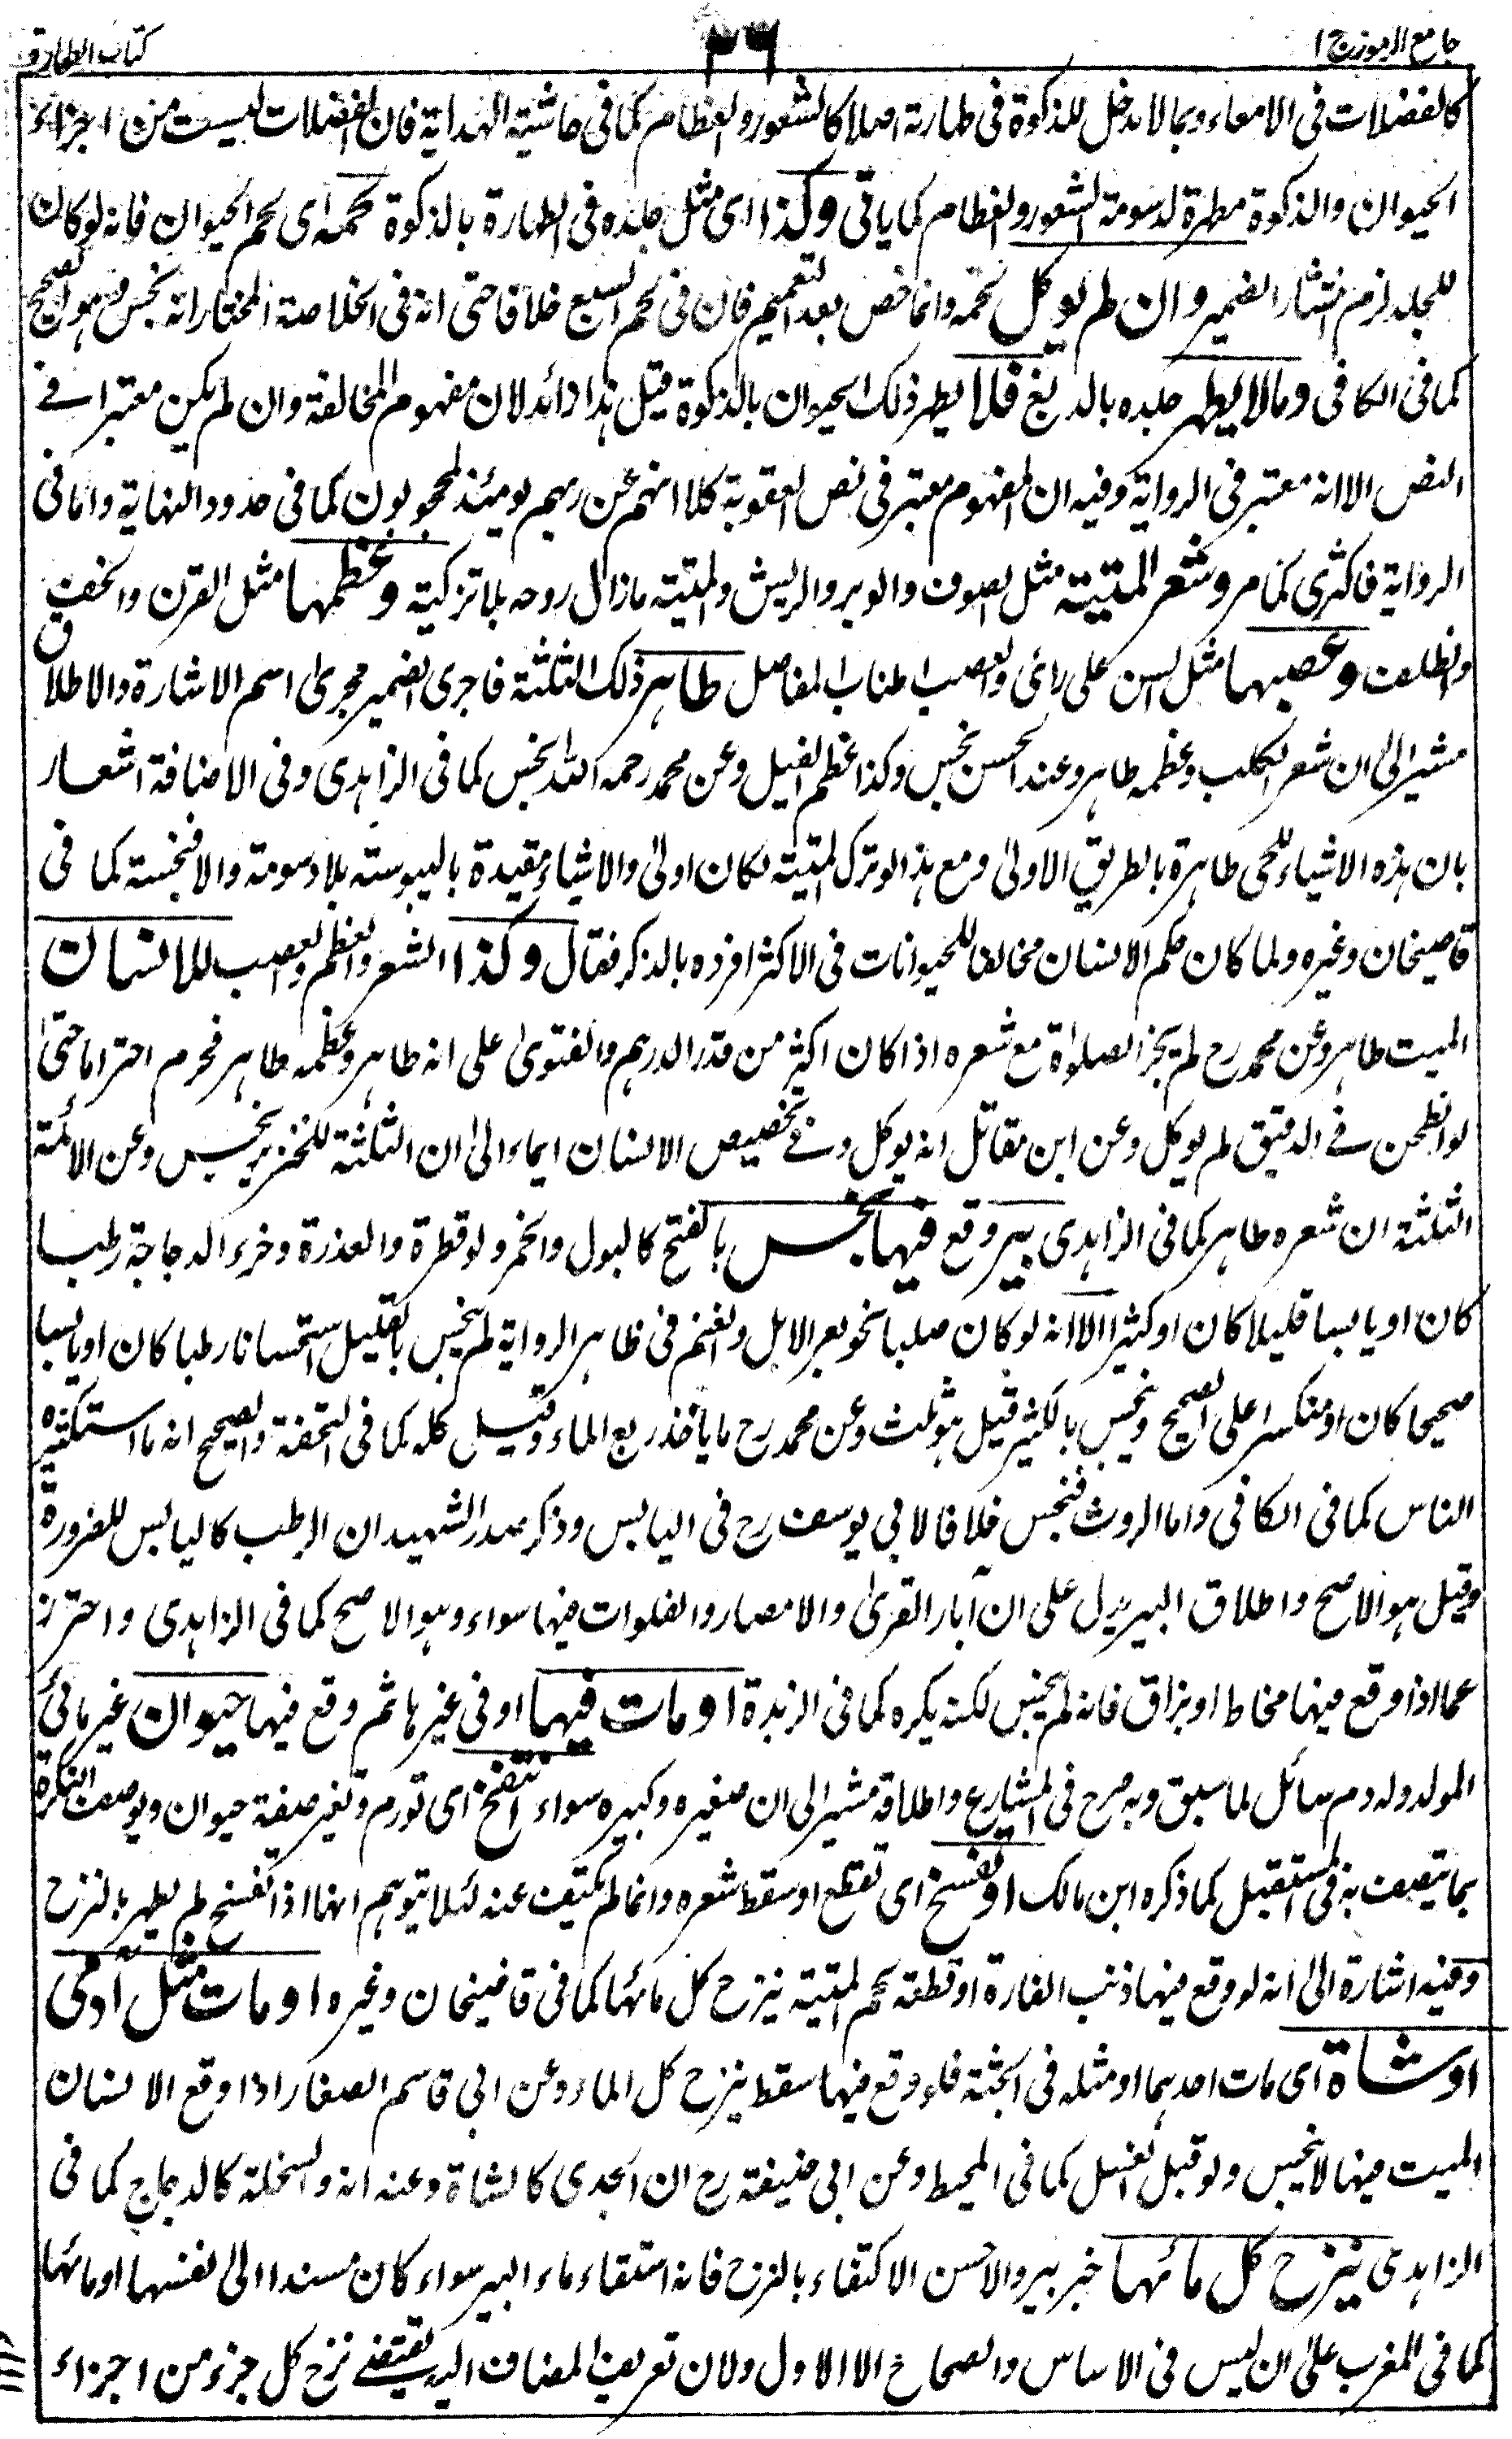 جامع الرموز ج ١
٣٦
كتاب الطهارة
كالفضلات فى الامعاء وبما لا دخل للذكوة فى طهارته اصلا كالشعور والعظام كما فى حاشية الهداية فان الفضلات ليست من اجزاء
الحيوان والذكوة مطهرة لدسومة الشعور والعظام كما ياتى وكذا اى مثل جلده فى الطهارة بالذكوة لحمه اى لحم الحيوان فانه لو كان
للجلد لزم انتشار الضمير وان لم يوكل لحمه وانما خص بعد التعميم فان فى لحم السبع خلافا حتى انه فى الخلاصة المختار انه نجس هو الصحيح
كما فى الكافى وما لا يطهر جلده بالدبغ فلا يطهر ذلك الحيوان بالذكوة قيل هذا زائد لان مفهوم المخالفة وان لم يكن معتبرا فى
النص الا انه معتبر فى الرواية وفيه ان المفهوم معتبر فى نص العقوبة كلا انهم عن ربهم يومئذ لمحجوبون كما فى حدود النهاية واما فى
الرواية فاكثرى كما مر وشعر الميتة مثل الصوف والوبر والريش والميتة ما زال روحه بلا تزكية وعظمها مثل القرن والخف
والظلف وعصبها مثل السن على رائ والعصب اطناب المفاصل طاهر ذلك الثلثة فاجرى الضمير مجرى اسم الاشارة والاطلاق
مشير الى ان شعر الكلب وعظمه طاهر وعند الحسن نجس وكذا عظم الفيل وعن محمد رحمه الله نجس كما فى الزاهدى وفى الاضافة اشعار
بان هذه الاشياء للحى طاهرة بالطريق الاولى ومع هذا لو ترك الميتة لكان اولى والاشياء مقيدة باليبوسة بلا دسومة والا فنجسة كما فى
قاضيخان وغيره ولما كان حكم الانسان مخالفا للحيوانات فى الاكثر افرده بالذكر فقال وكذا الشعر والعظم والعصب للانسان
الميت طاهر وعن محمد رح لم يجز الصلوة مع شعره اذا كان اكثر من قدر الدرهم والفتوى على انه طاهر وعظمه طاهر فحرم احتراما حتى
لو انطحن فى الدقيق لم يوكل وعن ابن مقاتل انه يوكل وفى تخصيص الانسان ايماء الى ان الثلثة للخنزير نجس وعن الائمة
الثلثة ان شعره طاهر كما فى الزاهدى بير وقع فيها نجس بالفتح كالبول والخمر ولو قطرة والعذرة وخرء الدجاجة رطبا
كان او يابسا قليلا كان او كثيرا الا انه لو كان صلبا نحو بعر الابل والغنم فى ظاهر الرواية لم ينجس بالقليل استحسانا رطبا كان او يابسا
صحيحا كان او منكسرا على الصحيح وينجس بالكثير قيل هو ثلث وعن محمد رح ما ياخذ ربع الماء وقيل كله كما فى التحفة والصحيح انه ما استكثيره
الناس كما فى الكافى واما الروث فنجس خلافا لابى يوسف رح فى اليابس وذكر صدر الشهيد ان الرطب كاليابس للضرورة
وقيل هو الاصح واطلاق البير يدل على ان آبار القرى والامصار والفلوات فيها سواء وهو الاصح كما فى الزاهدى واحترز
عما اذا وقع فيها مخاط او بزاق فانه لم ينجس لكنه يكره كما فى الزبدة او مات فيها او فى غيرها ثم وقع فيها حيوان غير مائى
المولد وله دم سائل لما سبق وبه صرح فى المشارع واطلاقه مشير الى ان صغيره وكبيره سواء انتفخ اى تورم وتغير صفة حيوان ويوصف النكرة
بما يتصف به فى المستقبل كما ذكره ابن مالك او تفسخ اى تقطع او سقط شعره وانما لم يكتف عنه لئلا يتوهم انها اذا تفسخ لم يطهر بالنزح
وفيه اشارة الى انه لو وقع فيها ذنب الفارة او قطعة لحم الميتة ينزح كل مائها كما فى قاضيخان وغيره او مات مثل آدمى
او شاة اى مات احدهما او مثله فى الجثة فلو وقع فيها سقط ينزح كل الماء وعن ابى قاسم الصفار اذا وقع الانسان
الميت فيها لا ينجس ولو قبل الغسل كما فى المحيط وعن ابى حنيفة رح ان الجدى كالشاة وعنه انه والسخلة كالدجاج كما فى
الزاهدى ينزح كل مائها خبر بير والاحسن الاكتفاء بالنزح فانه استقاء ماء البير سواء كان مسندا الى نفسها او مائها
كما فى المغرب على ان ليس فى الاساس والصحاح الا الاول ولان تعريف المضاف اليه يقتضى نزح كل جزء من اجزاء